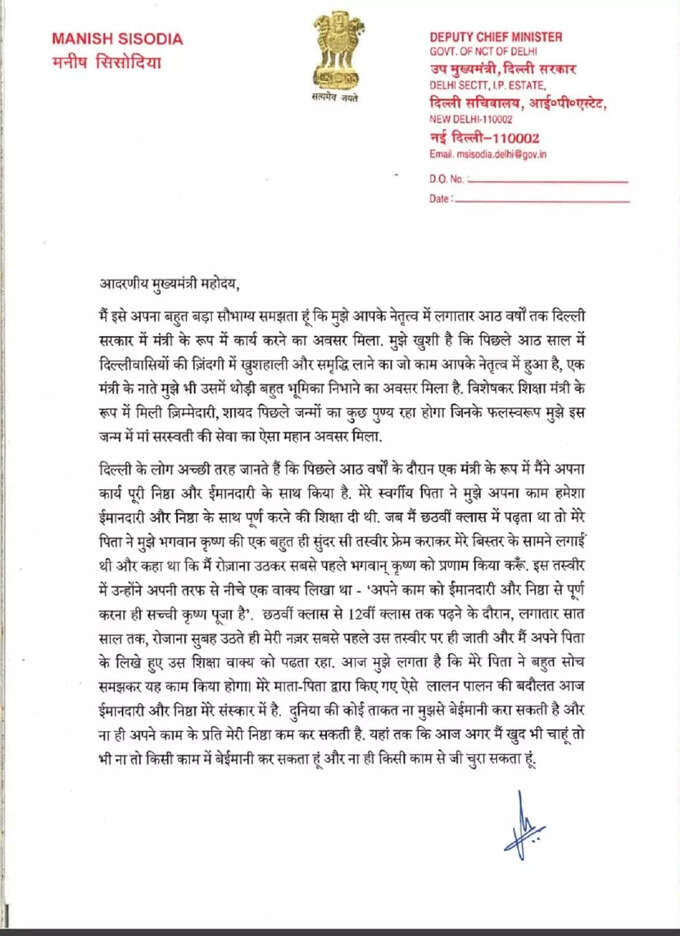 MANISH SISODIA
मनीष सिसोदिया
सत्यमेव जयते
DEPUTY CHIEF MINISTER
GOVT. OF NCT OF DELHI
उप मुख्यमंत्री, दिल्ली सरकार
DELHI SECTT, I.P. ESTATE,
दिल्ली सचिवालय, आई०पी०एस्टेट,
NEW DELHI-110002
नई दिल्ली–110002
Email. msisodia.delhi@gov.in
D.O. No. :
Date :
आदरणीय मुख्यमंत्री महोदय,
मैं इसे अपना बहुत बड़ा सौभाग्य समझता हूं कि मुझे आपके नेतृत्व में लगातार आठ वर्षों तक दिल्ली
सरकार में मंत्री के रूप में कार्य करने का अवसर मिला. मुझे खुशी है कि पिछले आठ साल में
दिल्लीवासियों की ज़िंदगी में खुशहाली और समृद्धि लाने का जो काम आपके नेतृत्व में हुआ है, एक
मंत्री के नाते मुझे भी उसमें थोड़ी बहुत भूमिका निभाने का अवसर मिला है. विशेषकर शिक्षा मंत्री के
रूप में मिली ज़िम्मेदारी, शायद पिछले जन्मों का कुछ पुण्य रहा होगा जिनके फलस्वरूप मुझे इस
जन्म में मां सरस्वती की सेवा का ऐसा महान अवसर मिला.
दिल्ली के लोग अच्छी तरह जानते हैं कि पिछले आठ वर्षों के दौरान एक मंत्री के रूप में मैंने अपना
कार्य पूरी निष्ठा और ईमानदारी के साथ किया है. मेरे स्वर्गीय पिता ने मुझे अपना काम हमेशा
ईमानदारी और निष्ठा के साथ पूर्ण करने की शिक्षा दी थी. जब मैं छठवीं क्लास में पढ़ता था तो मेरे
पिता ने मुझे भगवान कृष्ण की एक बहुत ही सुंदर सी तस्वीर फ्रेम कराकर मेरे बिस्तर के सामने लगाई
थी और कहा था कि मैं रोज़ाना उठकर सबसे पहले भगवान् कृष्ण को प्रणाम किया करूँ. इस तस्वीर
में उन्होंने अपनी तरफ से नीचे एक वाक्य लिखा था - ‘अपने काम को ईमानदारी और निष्ठा से पूर्ण
करना ही सच्ची कृष्ण पूजा है’. छठवीं क्लास से 12वीं क्लास तक पढ़ने के दौरान, लगातार सात
साल तक, रोजाना सुबह उठते ही मेरी नज़र सबसे पहले उस तस्वीर पर ही जाती और मैं अपने पिता
के लिखे हुए उस शिक्षा वाक्य को पढता रहा. आज मुझे लगता है कि मेरे पिता ने बहुत सोच
समझकर यह काम किया होगा। मेरे माता-पिता द्वारा किए गए ऐसे लालन पालन की बदौलत आज
ईमानदारी और निष्ठा मेरे संस्कार में है. दुनिया की कोई ताकत ना मुझसे बेईमानी करा सकती है और
ना ही अपने काम के प्रति मेरी निष्ठा कम कर सकती है. यहां तक कि आज अगर मैं खुद भी चाहूं तो
भी ना तो किसी काम में बेईमानी कर सकता हूं और ना ही किसी काम से जी चुरा सकता हूं.